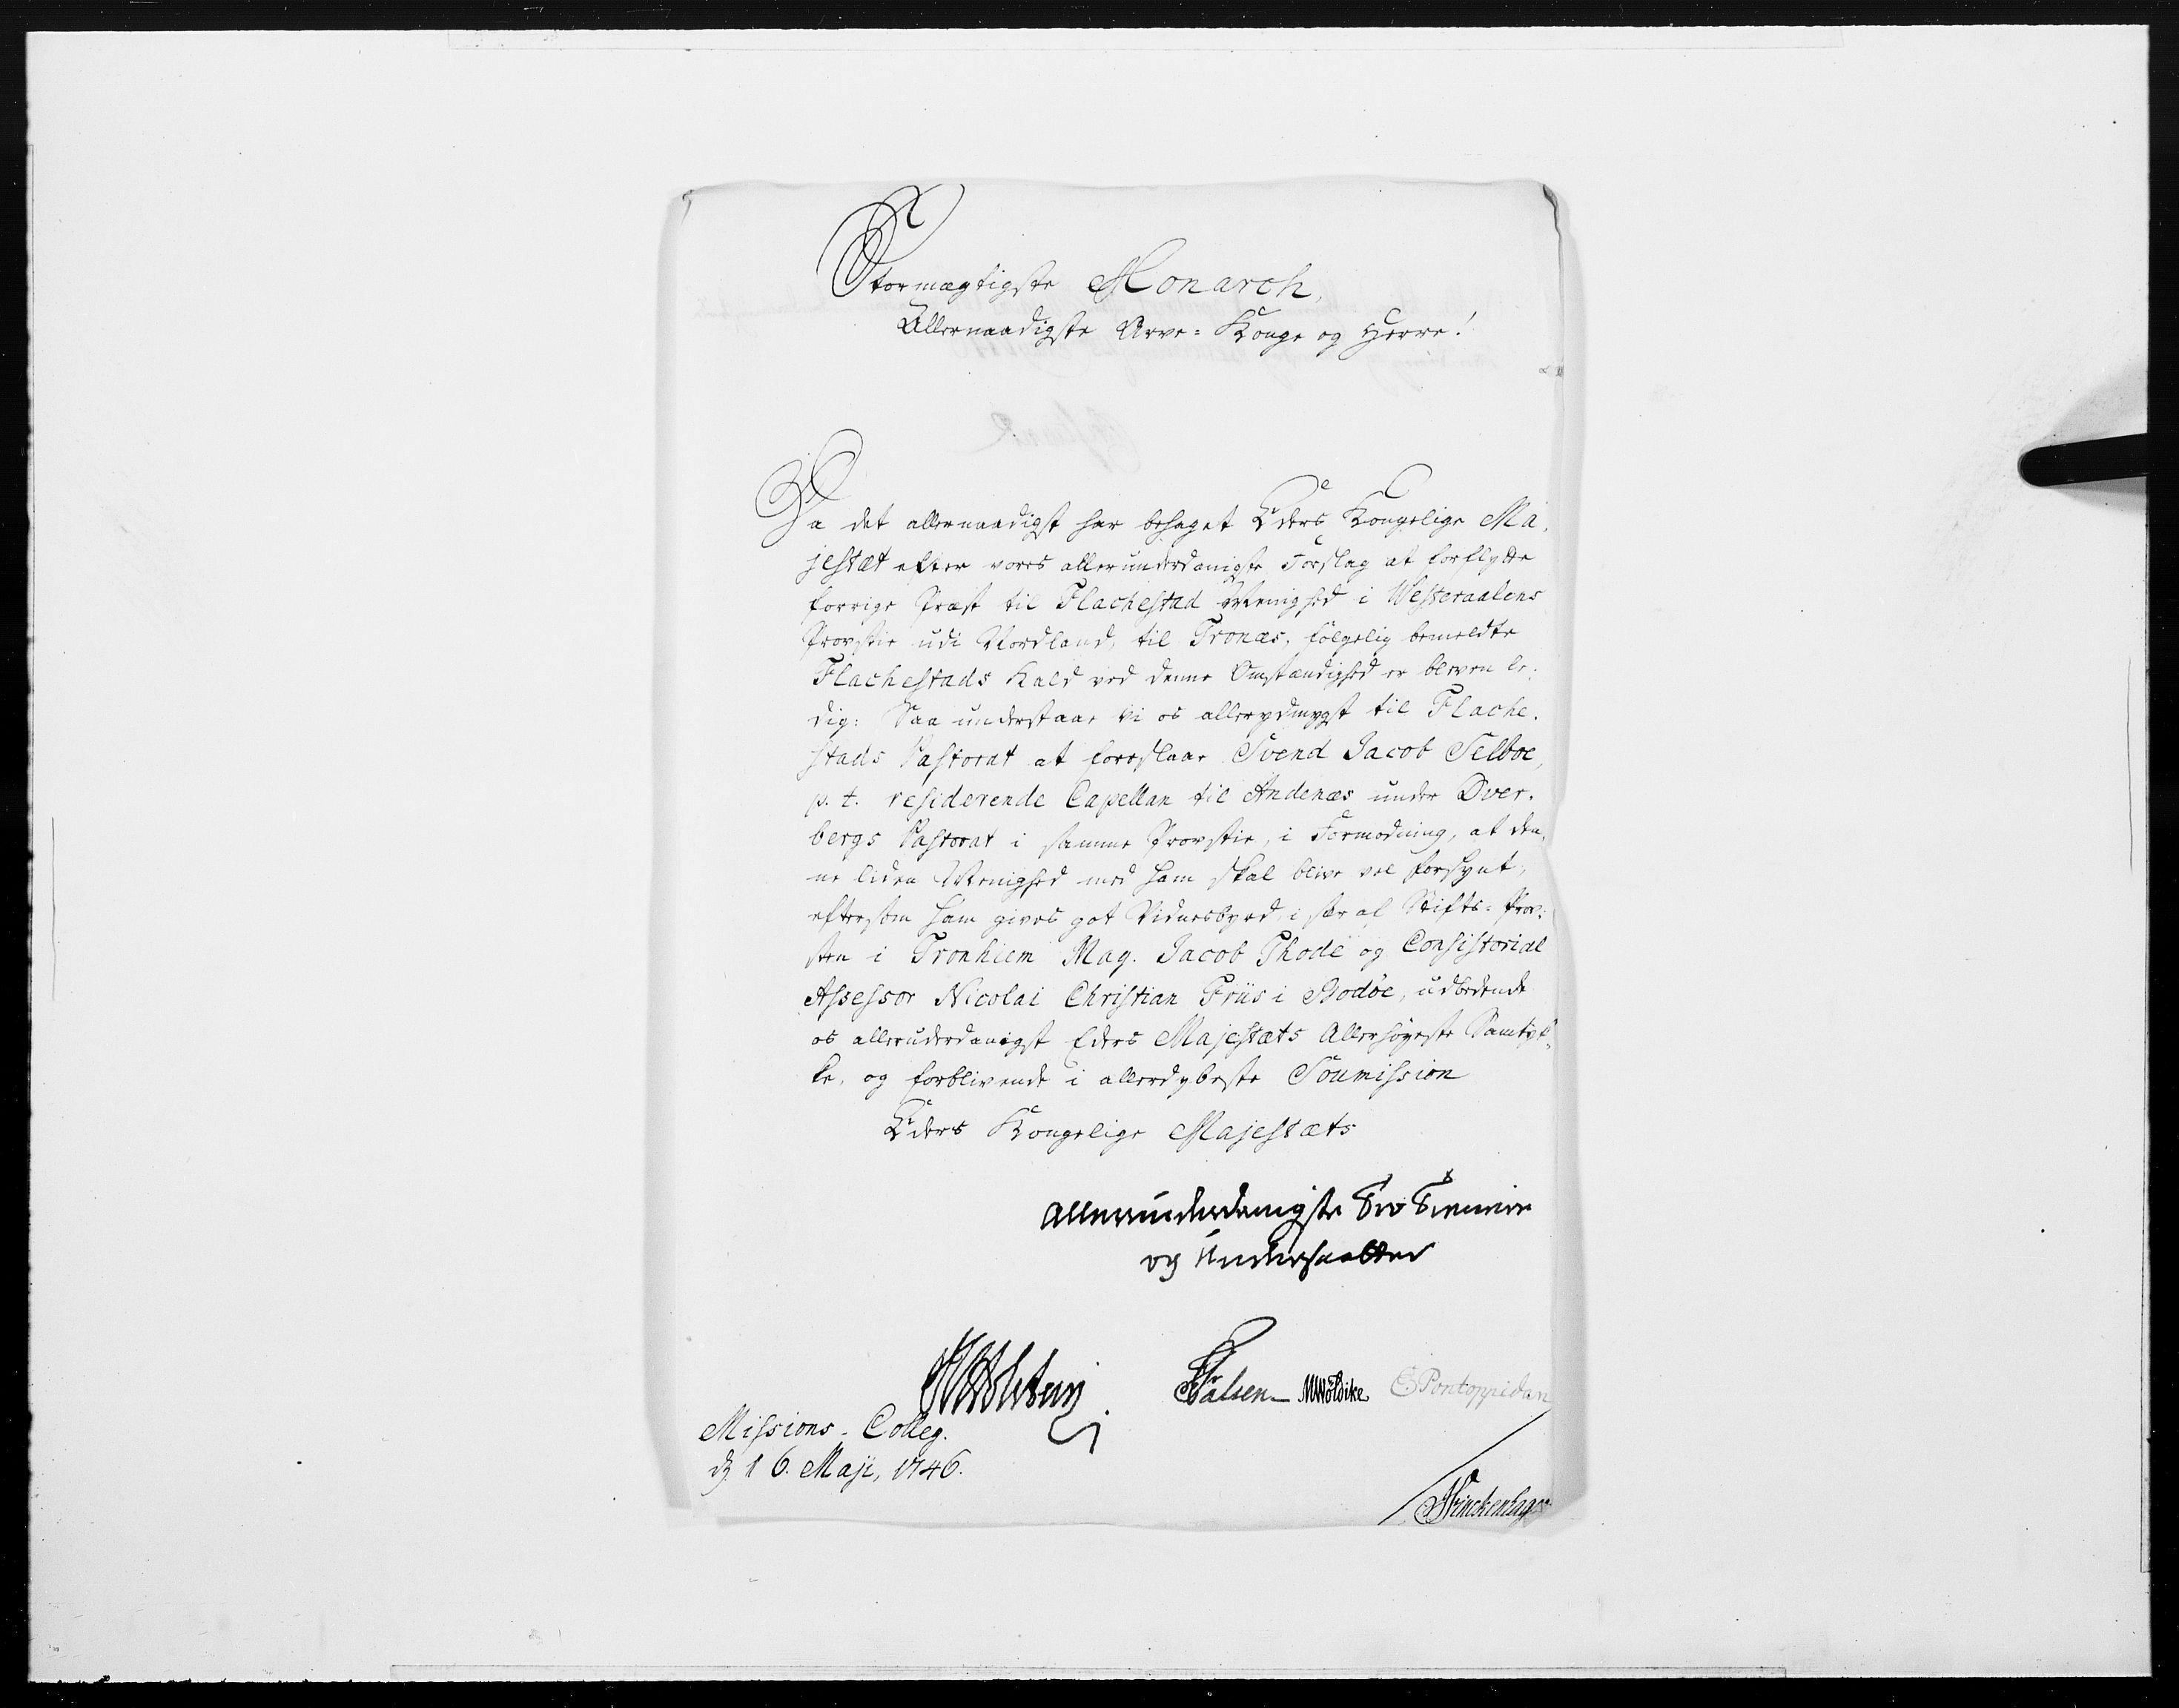 Stormægtigste Monarch,
Allernaadigste Arve-Konge og Herre!
Da det allernaadigst har behaget Eders Kongelige Ma-
jestæt efter vores allerunderdanigste Forslag at forflytte
forrige Præst til Flachestad Menighed i Westeraalens
Provstie udi Nordland, til Tronæs, følgelig bemeldte
Flachestads Kald ved denne Omstændighed er bleven le-
dig: Saa understaae vi os allerydmygst til Flache-
stads Pastorat at foreslaae Svend Jacob Selboe,
p. t. residerende Capellan til Andenæs under Dver-
bergs Pastorat i samme Provstie, i Formodning, at den-
ne liden Menighed med ham skal blive vel forsynt,
eftersom ham gives got Vidnesbyrd, i sær af Stifts-Prov-
sten i Tronhiem Mag. Jacob Thode og Consistorial
Assessor Nicolai Christian Friis i Bodöe, udbedende
os alleruderdanigst Eders Majestæts Allerhöyeste Samtyk-
ke, og forblivende i allerdybeste Soumission
Eders Kongelige Majestæts
allerunderdanigste Troe Tienneire
og Undersaatter
JLHolstein
Falsen MWöldike EPontoppidan
Missions-Colleg.
d. 16. Maji, 1746.
Finckenhagen